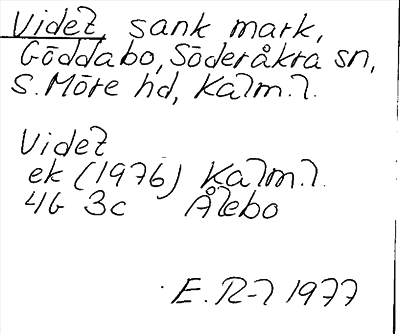 Videt, sank mark,
Göddabo, Söderåkra sn,
S. Möre hd, Kalm. l.
Videt
ek (1976) Kalm. l.
4G 3c Ålebo
E. R-l 1977